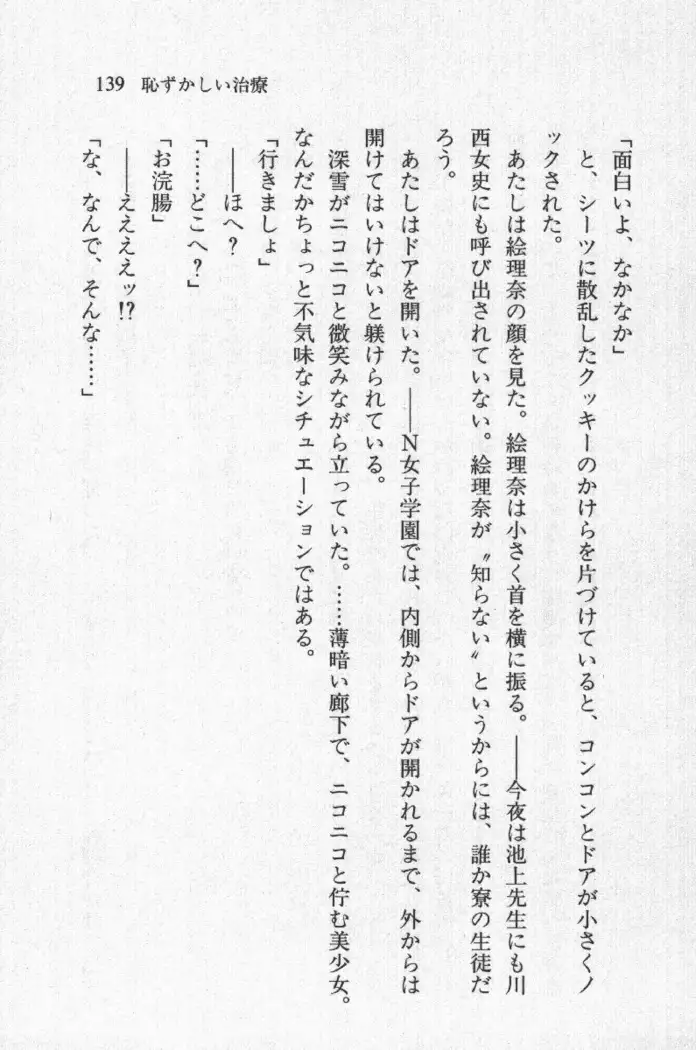 139 恥ずかしい治療
「面白いよ、なかなか」
と、シーツに散乱したクッキーのかけらを片づけていると、コンコンとドアが小さくノ
ックされた。
あたしは絵理奈の顔を見た。絵理奈は小さく首を横に振る。――今夜は池上先生にも川
西女史にも呼び出されていない。絵理奈が〝知らない〟というからには、誰か寮の生徒だ
ろう。
あたしはドアを開いた。――N女子学園では、内側からドアが開かれるまで、外からは
開けてはいけないと躾けられている。
深雪がニコニコと微笑みながら立っていた。……薄暗い廊下で、ニコニコと佇む美少女。
なんだかちょっと不気味なシチュエーションではある。
「行きましょ」
――ほへ?
「……どこへ?」
「お浣腸」
――ええええッ!?
「な、なんで、そんな……」